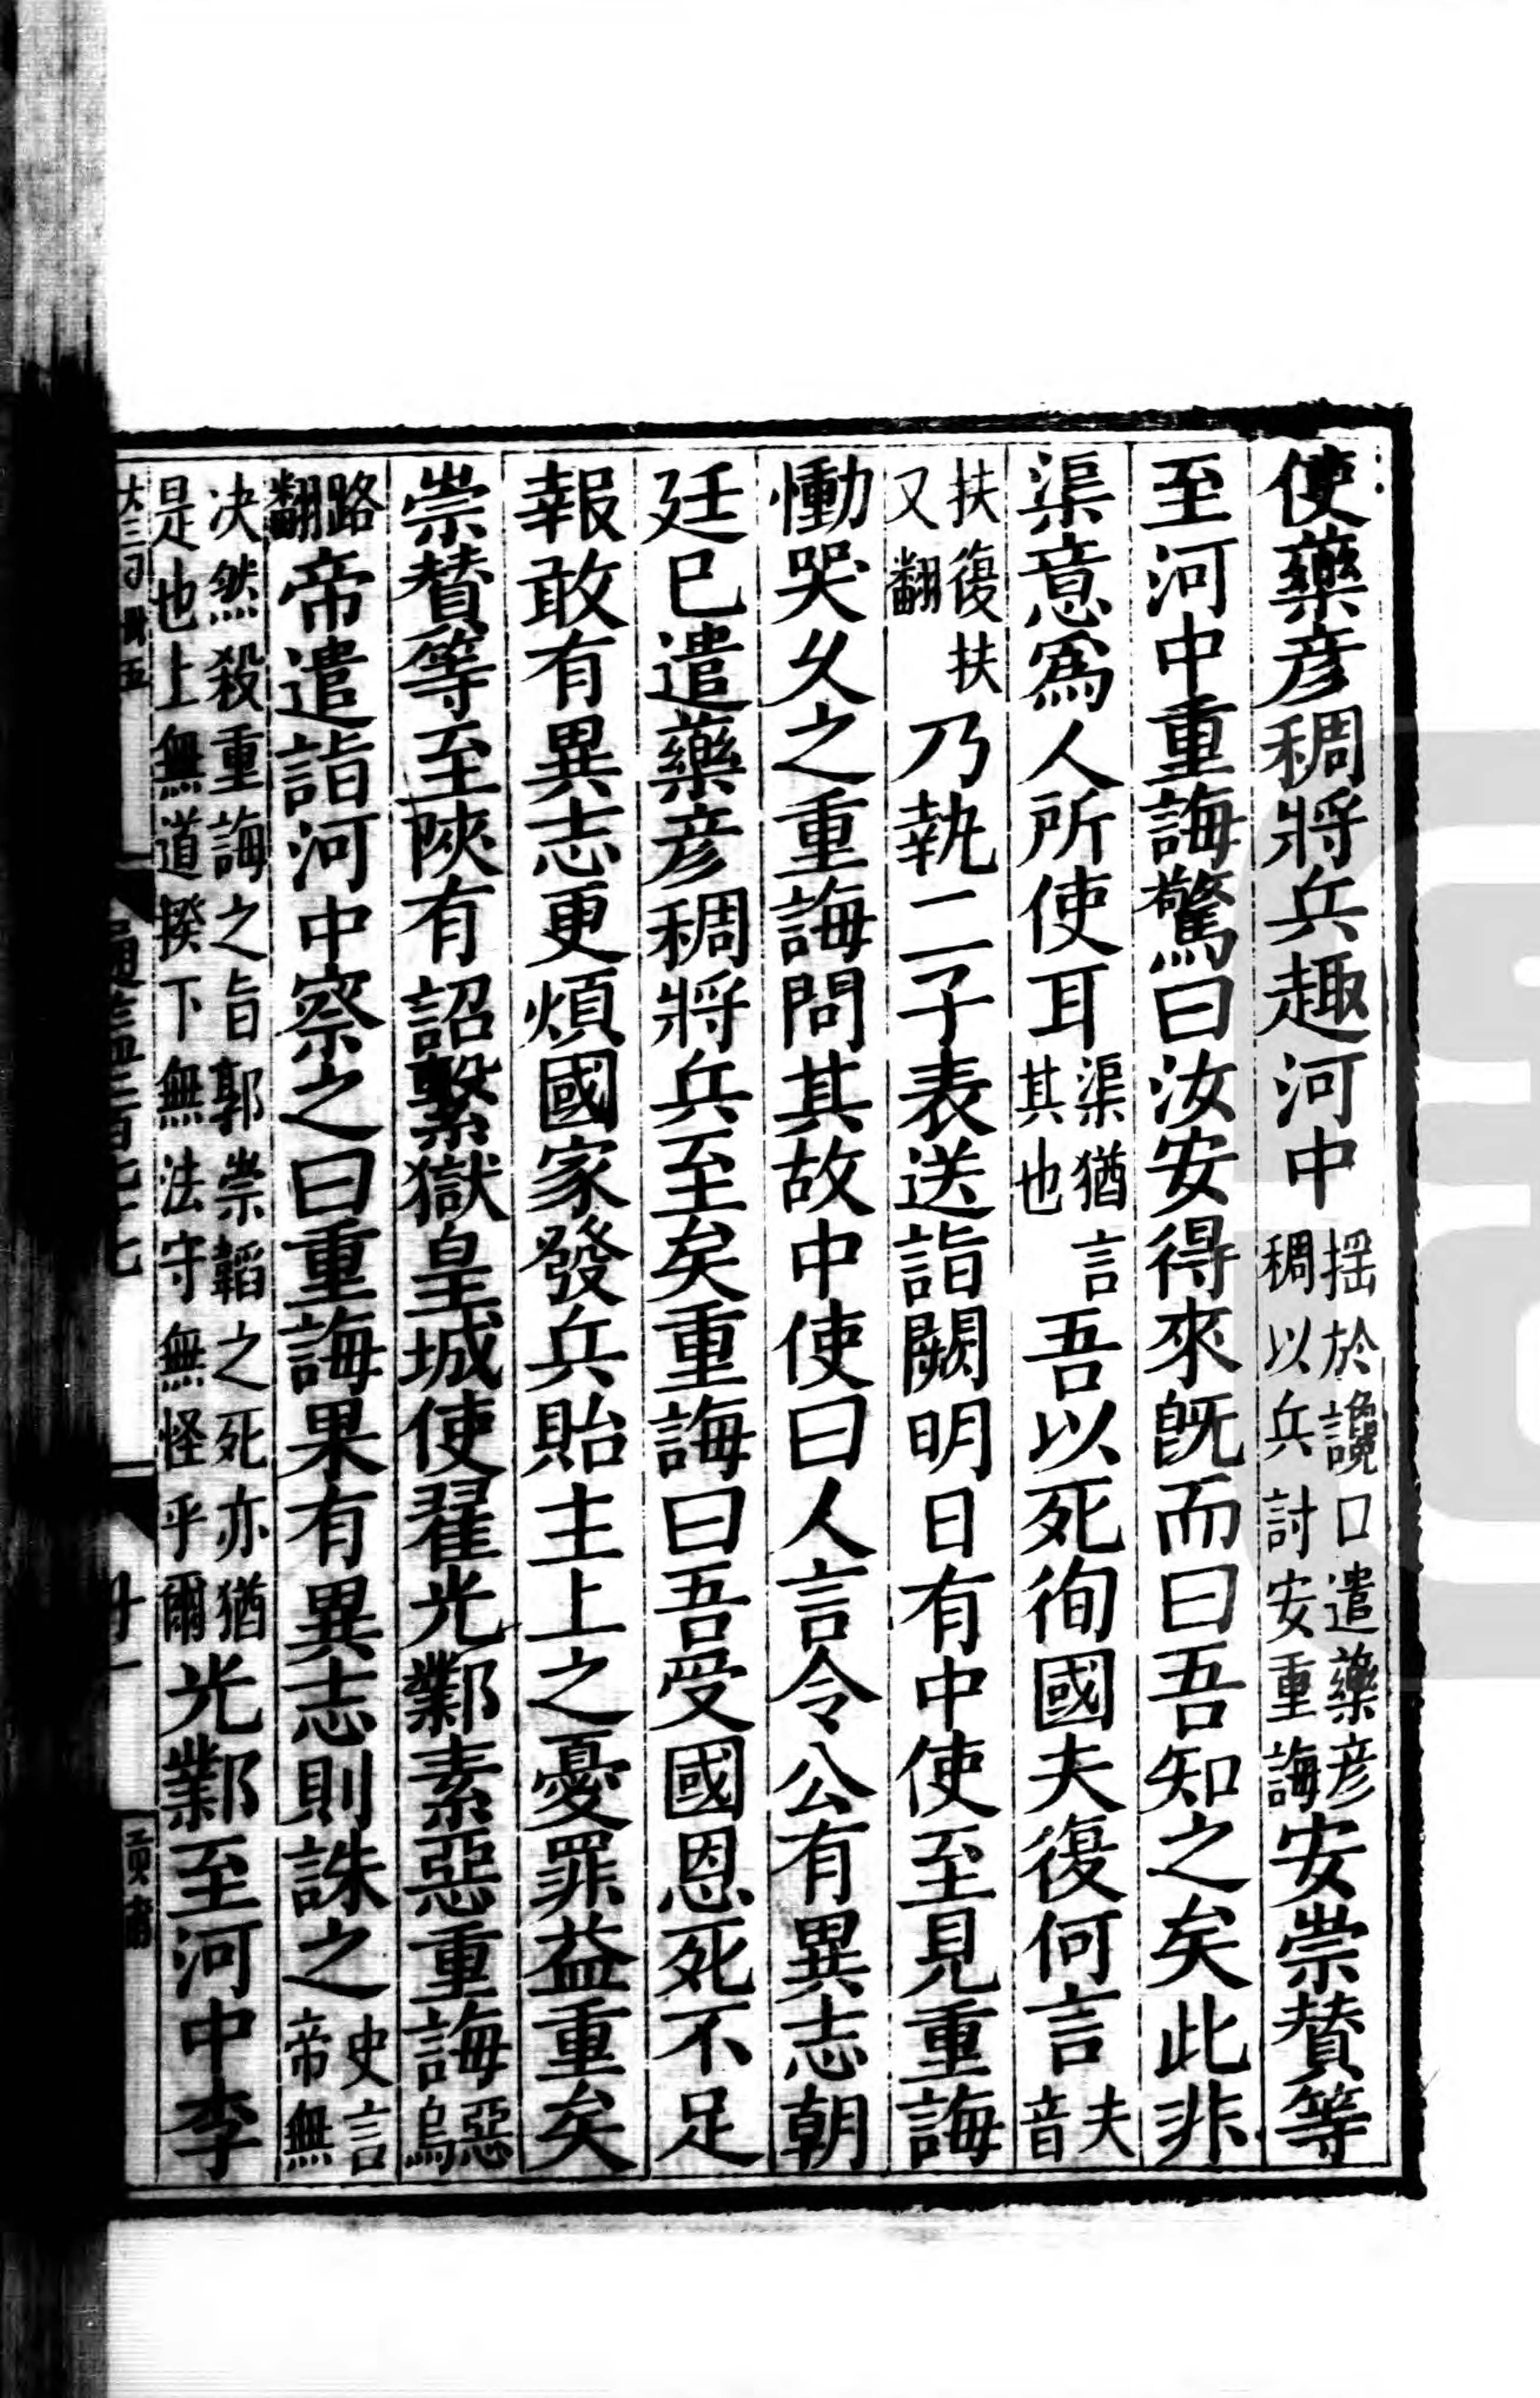 使藥彦稠將兵趣河中揺於讒口遣藥彦稠以兵討安重誨安崇賛等
至河中重誨驚曰汝安得來旣而曰吾知之矣此非
渠意爲人所使耳渠猶言其也吾以死徇國夫復何言夫音
扶復扶又翻乃執二子表送詣闕明日有中使至見重誨
慟哭乆之重誨問其故中使曰人言令公有異志朝
廷已遣藥彦稠將兵至矣重誨曰吾受國恩死不足
報敢有異志更煩國家發兵貽主上之憂罪益重矣
崇賛等至陜有詔繫獄皇城使翟光鄴素惡重誨惡烏
路翻帝遣詣河中察之曰重誨果有異志則誅之史言帝無
决然殺重誨之旨郭崇韜之死亦猶是也上無道揆下無法守無怪乎爾光鄴至河中李